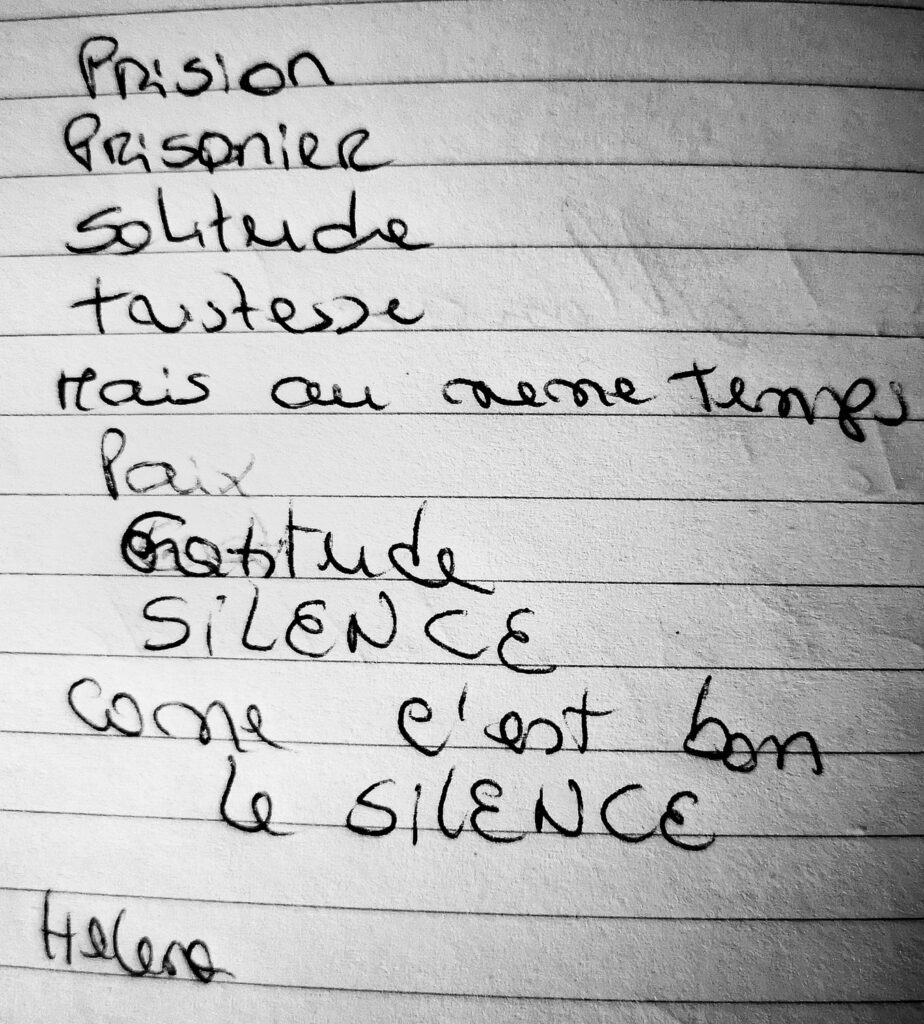 Prision
Prisonier
Solitude
tristesse
Mais au meme temps
Paix
Gratitude
SiLENCE
come c'est bon
le SiLENCE
Helena